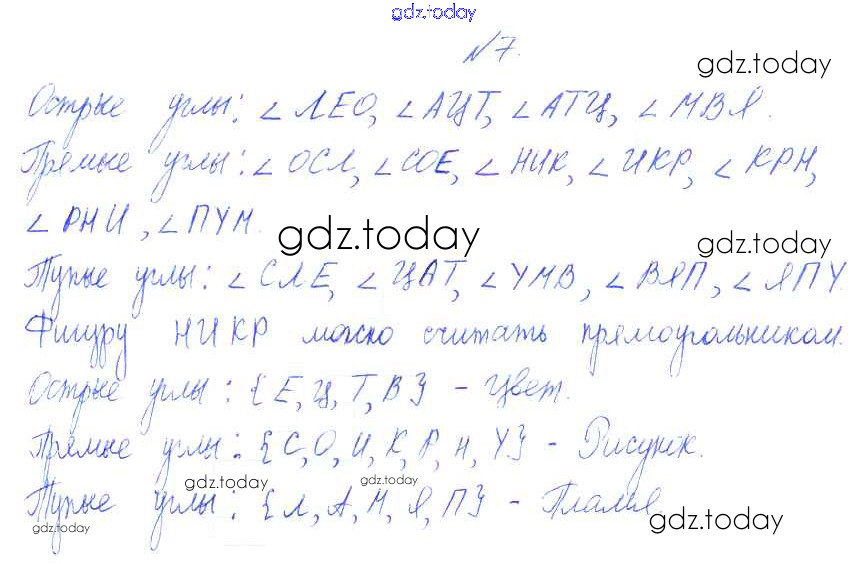 gdz.today
№7.
gdz.today
Острые углы: ∠ЛЕО, ∠АЦТ, ∠АТЦ, ∠МВЯ.
Прямые углы: ∠ОСЛ, ∠СОЕ, ∠НИК, ∠ИКР, ∠КРН,
∠РНИ, ∠ПУМ.
gdz.today
gdz.today
Тупые углы: ∠СЛЕ, ∠ЦАТ, ∠УМВ, ∠ВЯП, ∠ЯПУ.
Фигуру НИКР можно считать прямоугольником.
Острые углы: {Е, Ц, Т, В} - Цвет.
Прямые углы: {С, О, И, К, Р, Н, У} - Рисунок.
gdz.today
gdz.today
Тупые углы: {Л, А, М, Я, П} - Пламя.
gdz.today
gdz.today